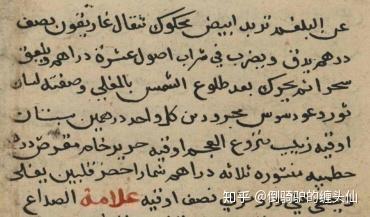 عن البلغم تربد ابيض محكوك مثقال غاريقون نصف
درهم يدق ويضرب في شراب اصول عشرة دراهم ويلعق
سحرا ثم يحرك بعد طلوع الشمس بالمغلي وصفته لسان
ثور وعود سوس مجرود من كل واحد درهمين بستان
اوقيه زبيب منزوع العجم اوقيه حرير خام مقروض
خطميه منثوره ثلاثه دراهم شمار اخضر قلبين يغلى
نصف اوقيه علامة الصداع
知乎 @倒骑驴的缠头仙